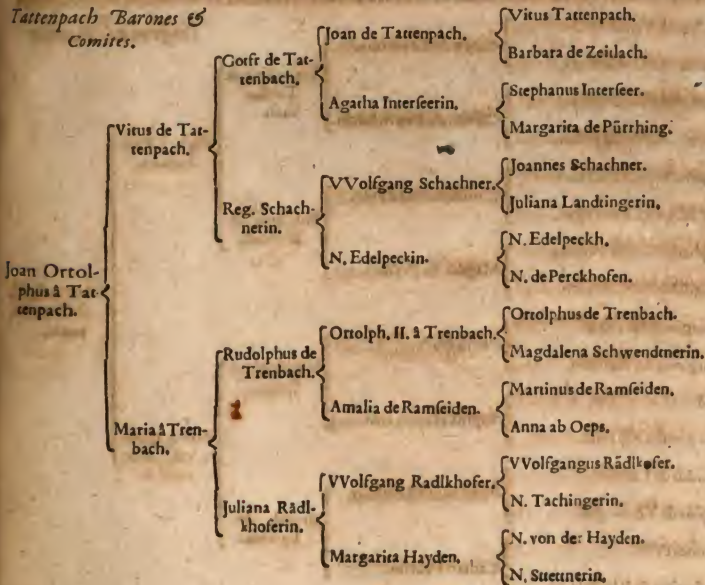 Tattenpach Barones &
Comites.
Joan Ortol-
phus â Tat-
tenpach.
Vitus de Tat-
tenpach.
Maria â Tren-
bach.
Gotfr de Tat-
tenbach.
Reg. Schach-
nerin.
Rudolphus de
Trenbach.
Juliana Rädl-
khoferin.
Joan de Tattenpach.
Agatha Interseerin.
VVolfgang Schachner.
N. Edelpeckin.
Ortolph. II. â Trenbach.
Amalia de Ramseiden.
VVolfgang Radlkhofer.
Margarita Hayden.
Vitus Tattenpach.
Barbara de Zeitlach.
Stephanus Interseer.
Margarita de Pürrhing.
Joannes Schachner.
Juliana Landtingerin.
N. Edelpeckh.
N. de Perckhofen.
Ortolphus de Trenbach.
Magdalena Schwendtnerin.
Martinus de Ramseiden.
Anna ab Oeps.
VVolfgangus Rädlkofer.
N. Tachingerin.
N. von der Hayden.
N. Stettnerin.